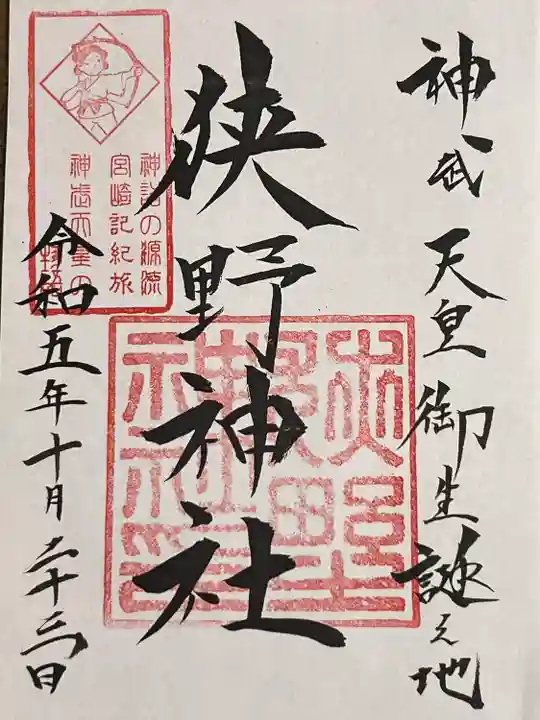 神武天皇御生誕之地
狭野神社
令和五年十月二十三日
神話の源流
宮崎記紀旅
神武天皇の